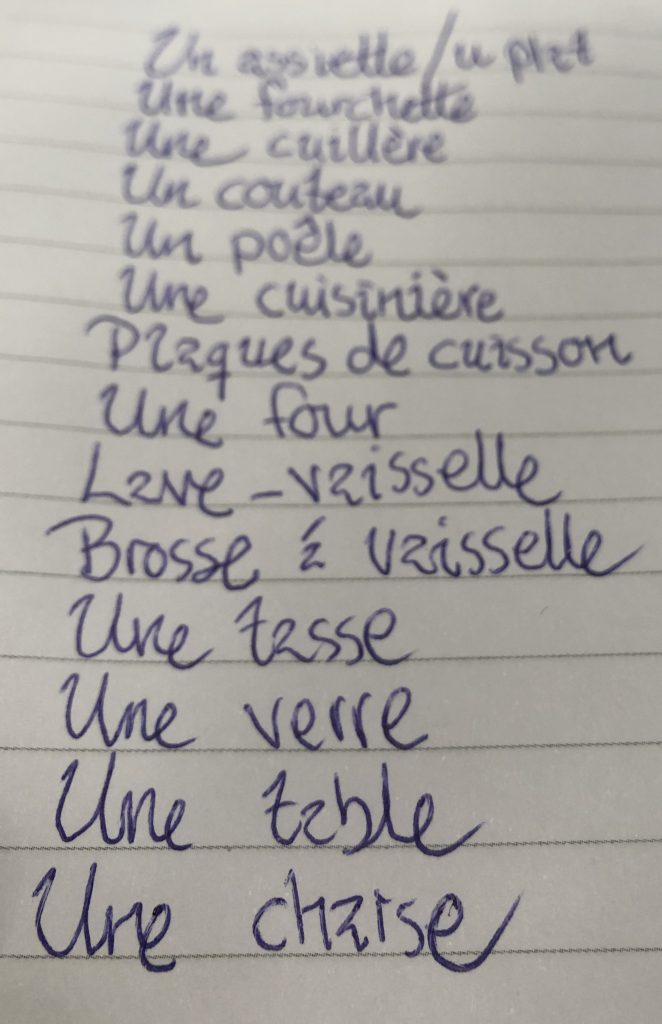 Un assiette/u plat
Une fourchette
Une cuillère
Un couteau
Un poêle
Une cuisinière
Plaques de cuisson
Une four
Lave-vaisselle
Brosse á vaisselle
Une tasse
Une verre
Une table
Une chaise